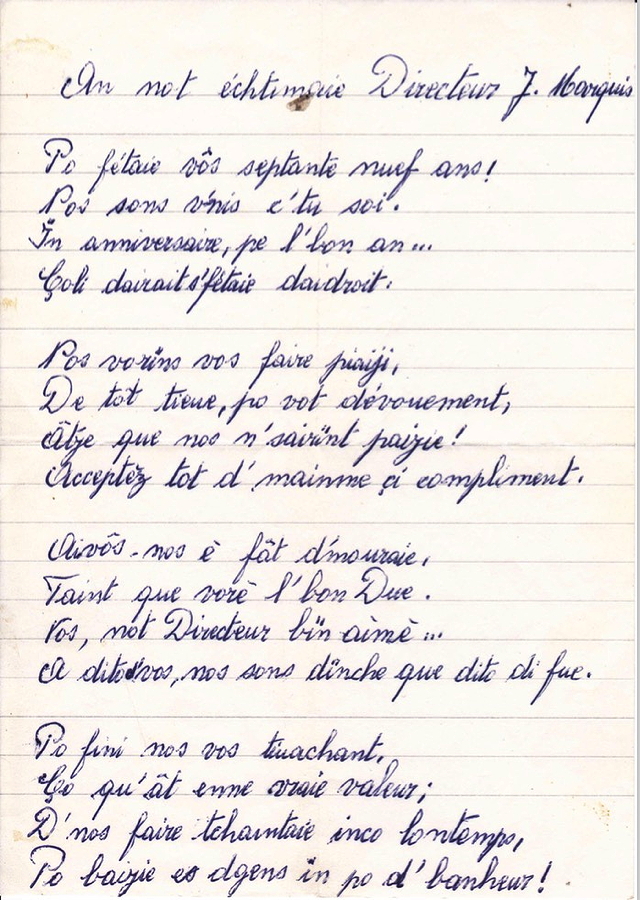 An not échtimaie Directeur J. Marquis
Po fétaie vôs septante nuef ans!
Nos sons v'nis c'tu soi.
În anniversaire, pe l'bon an...
Çoli dairait s'fétaie daidroit.
Nos vorïns vos faire piaiji,
De tot tieue, po vot dévouement,
Âtje que nos n'sairïnt paiyie!
Acceptêz tot d'mainme ci compliment.
Aivôs-nos è fât d'mouraie,
Taint que vorè l'bon Due.
Vos, not Directeur bïn aimè...
A dito vos, nos sons dïnche que dito di fue.
Po fini nos vos
Ço qu'ât enne vraie valeur;
D'nos faire tchaintaie inco lontemps,
Po baiyie es dgens ïn po d'banheur!